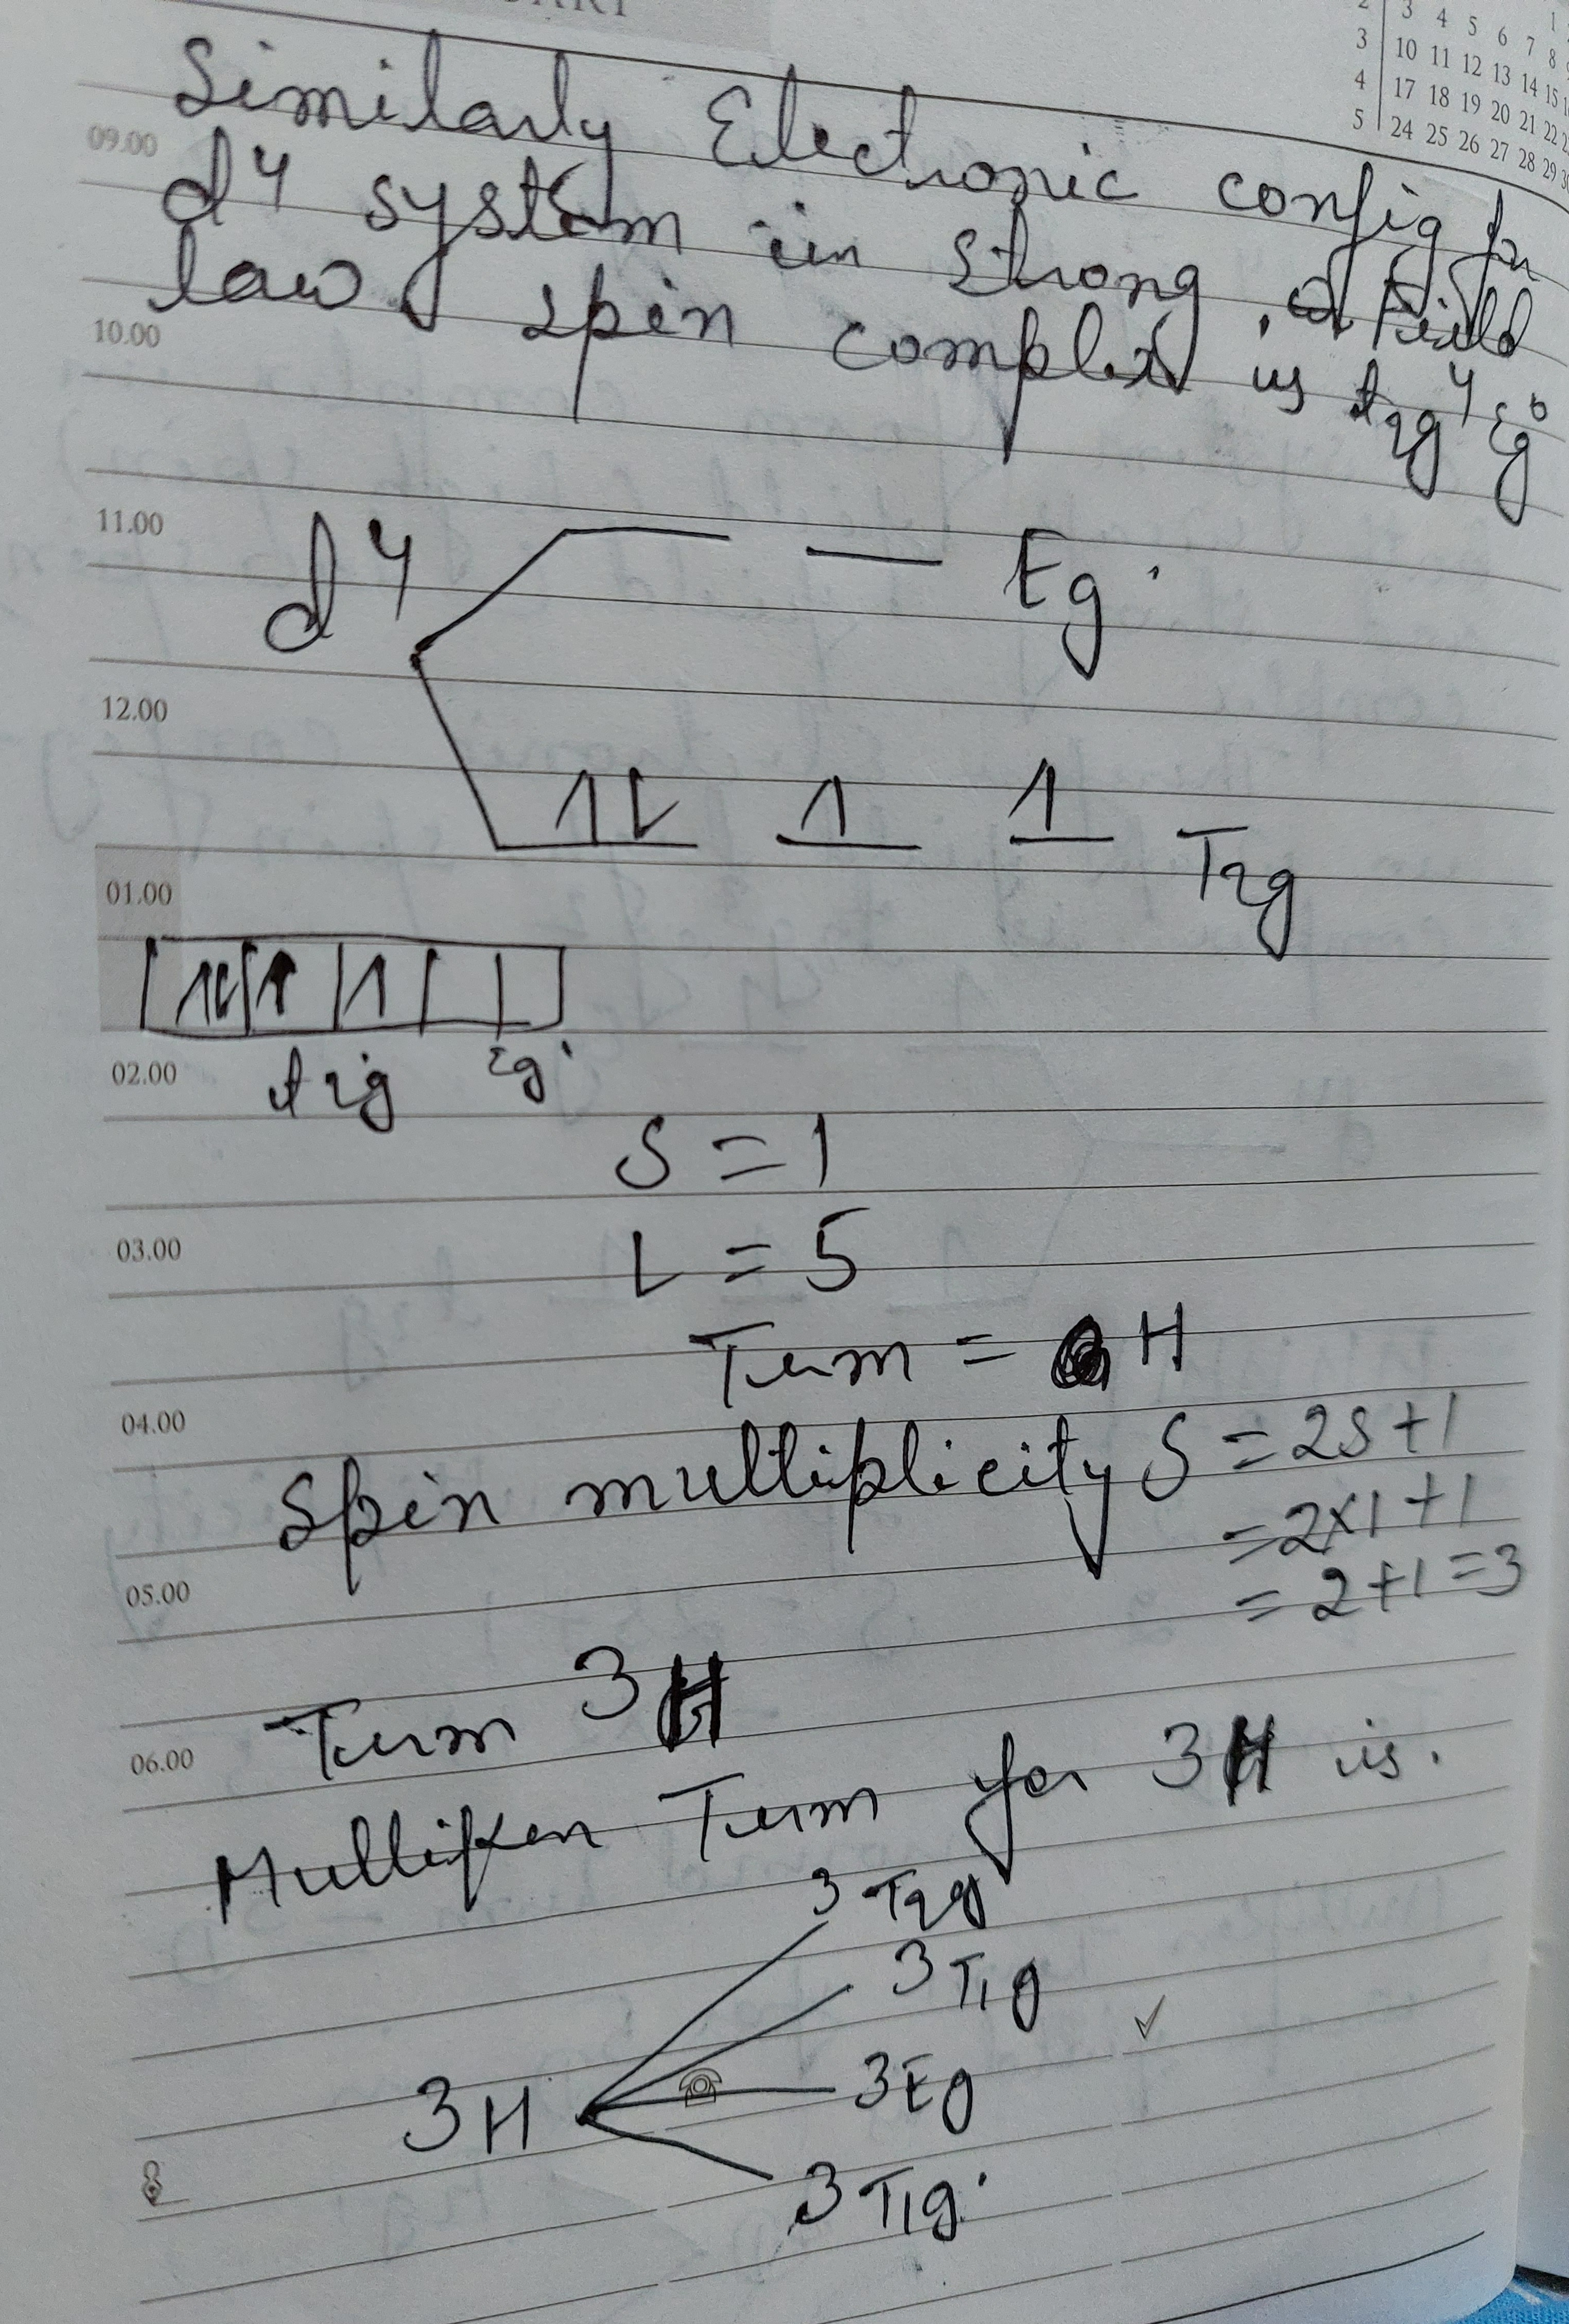 2 3 4 5 6 7 8
3 10 11 12 13 14 15
4 17 18 19 20 21 22
5 24 25 26 27 28 29
Similarly Electronic config for
09.00
d4 system in strong Feild
low spin complex is t2g4 Eg0
10.00
11.00
d4 Eg.
12.00
1 1 1 T2g
01.00
02.00
t2g Eg.
S = 1
03.00
L = 5
Term = H
04.00
Spin multiplicity S = 2S+1
= 2x1+1
05.00
= 2+1=3
Term 3H
06.00
Mulliken Term for 3H is.
3T2g
3T1g
3H 3Eg
3T1g.